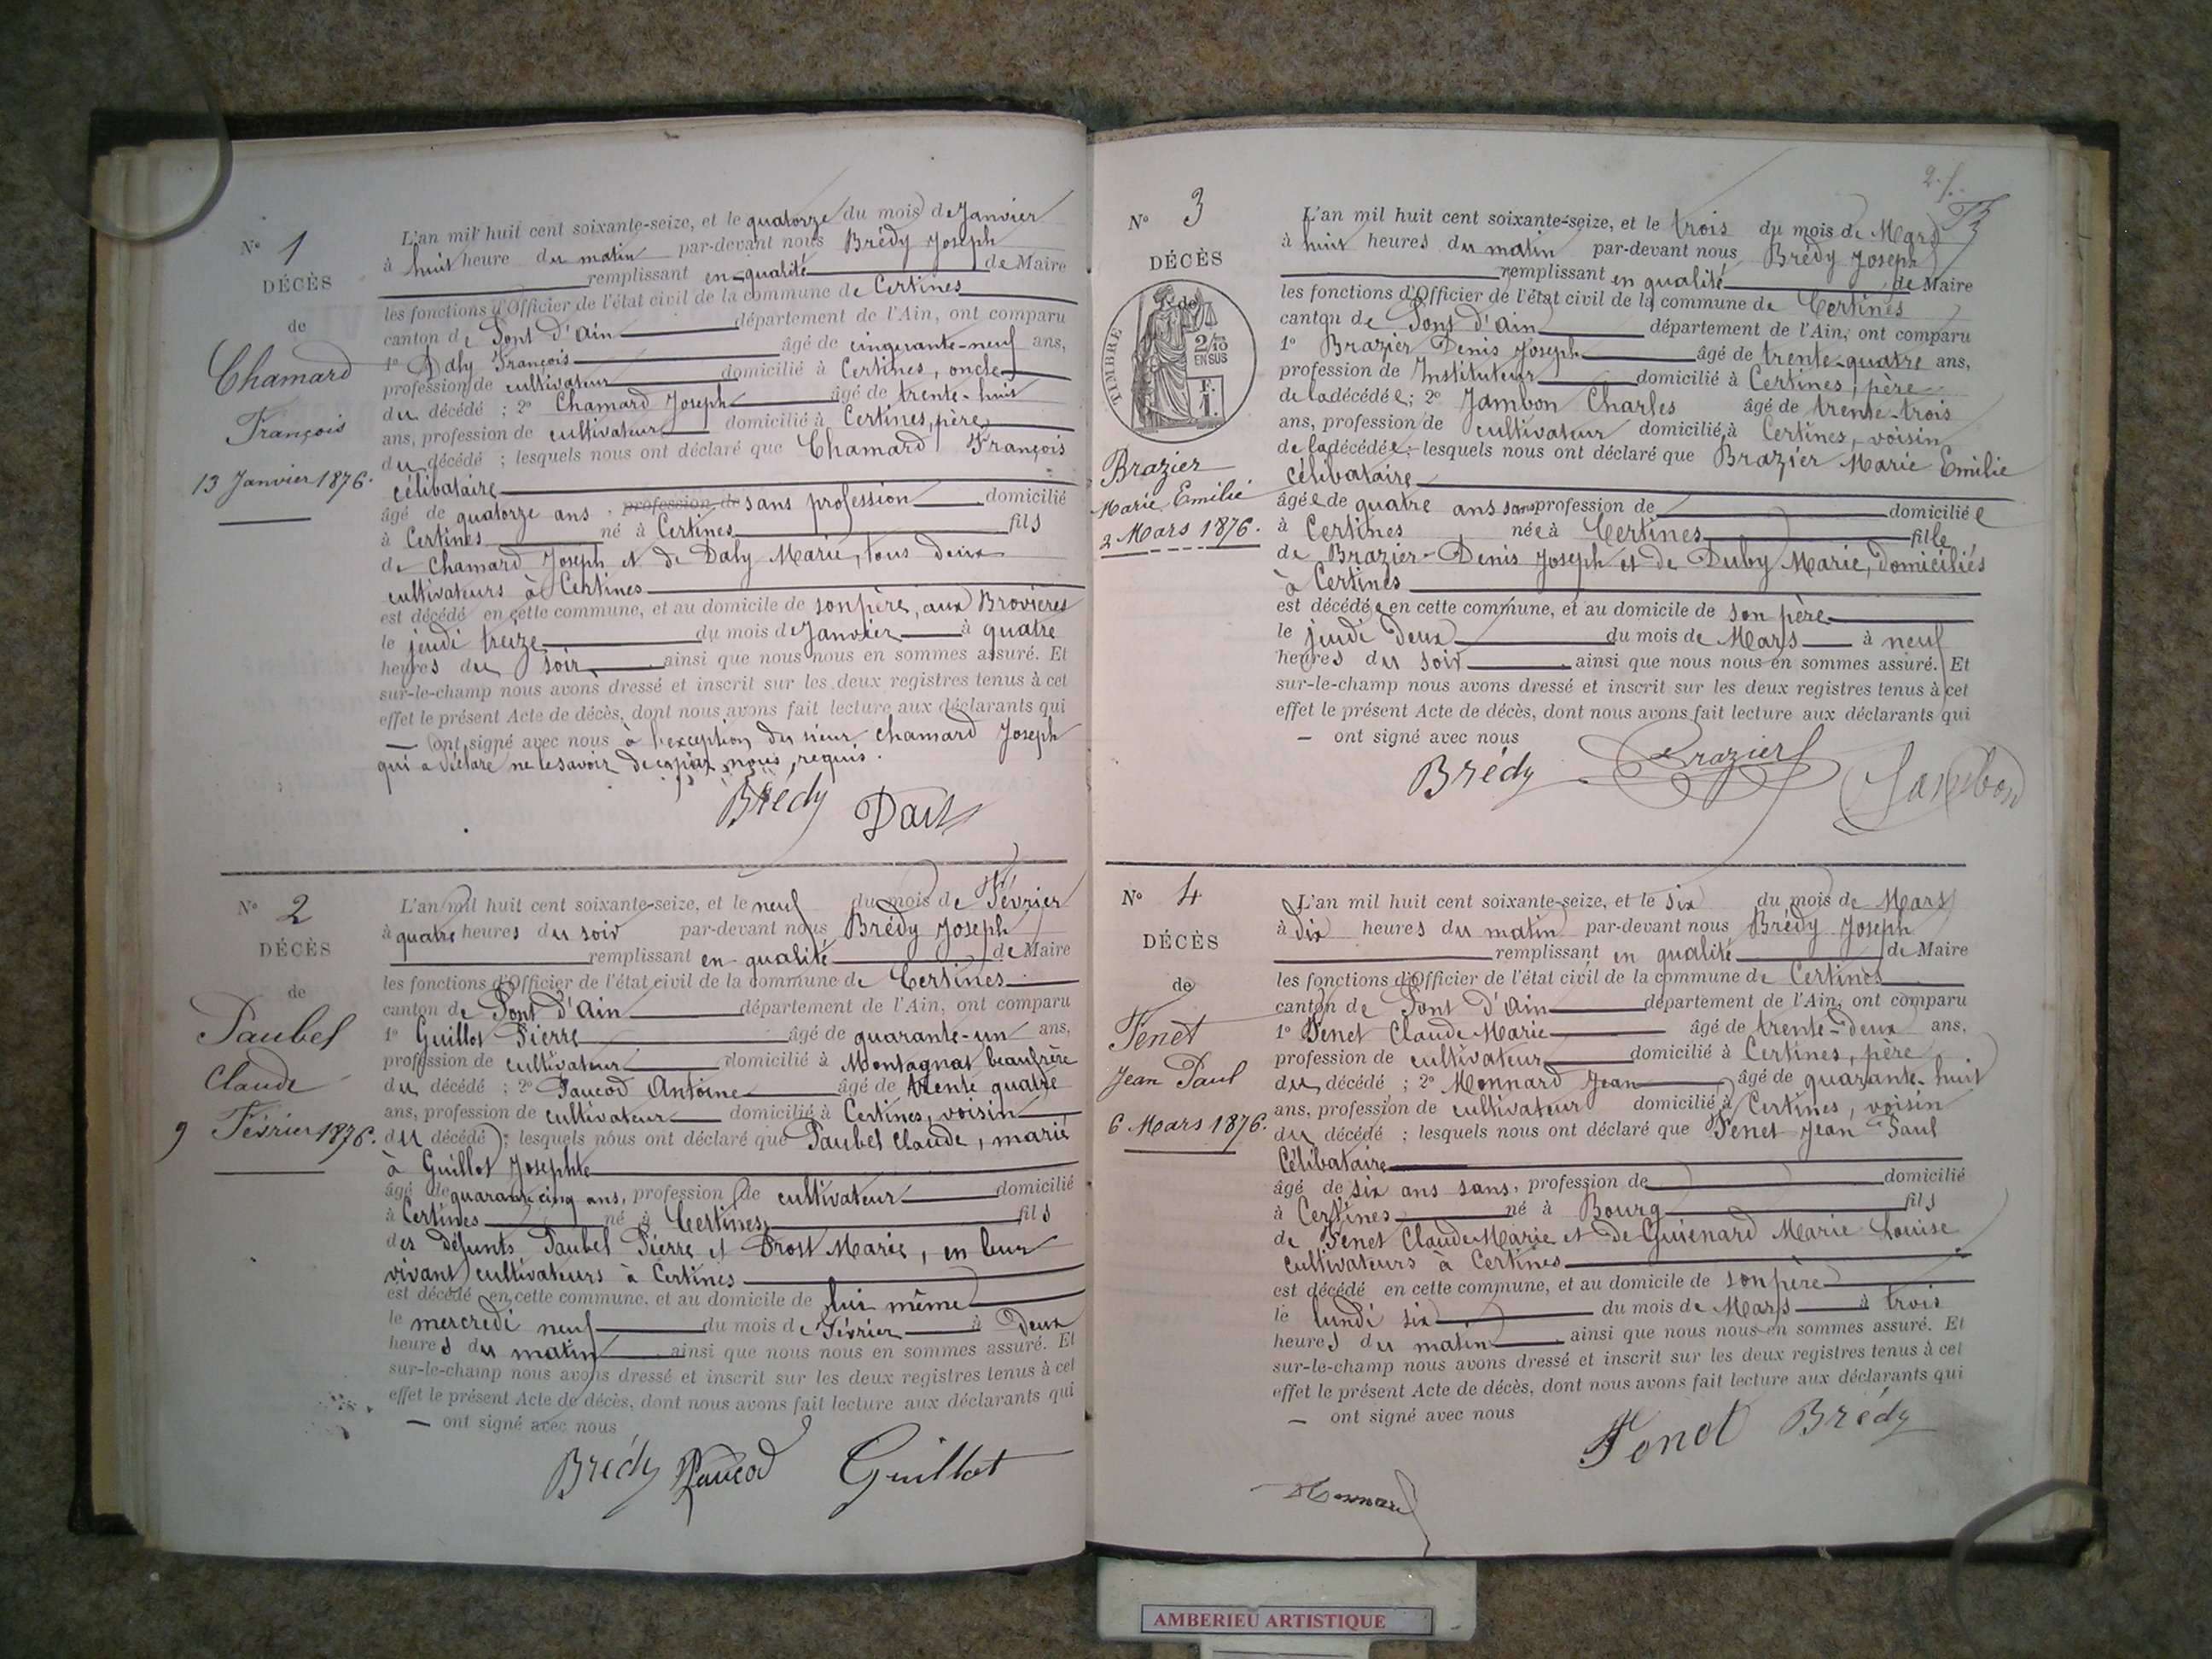 N° 1
DÉCÈS
de
Chamard
François
13 Janvier 1876.
L'an mil huit cent soixante-seize, et le quatorze du mois de Janvier
à huit heure du matin par-devant nous Brédy Joseph
remplissant en qualité de Maire
les fonctions d'Officier de l'état civil de la commune de Certines
canton de Pont d'Ain département de l'Ain, ont comparu
1° Daly François âgé de cinquante-neuf ans,
profession de cultivateur domicilié à Certines, oncle
du décédé ; 2° Chamard Joseph âgé de trente-huit
ans, profession de cultivateur domicilié à Certines, père
du décédé ; lesquels nous ont déclaré que Chamard François
célibataire
âgé de quatorze ans, profession de sans profession domicilié
à Certines né à Certines fils
de Chamard Joseph et de Daly Marie, tous deux
cultivateurs à Certines
est décédé en cette commune, et au domicile de son père, aux Brovières
le jeudi treize du mois de Janvier à quatre
heures du soir ainsi que nous nous en sommes assuré. Et
sur-le-champ nous avons dressé et inscrit sur les deux registres tenus à cet
effet le présent Acte de décès, dont nous avons fait lecture aux déclarants qui
— ont signé avec nous à l'exception du sieur Chamard Joseph
qui a déclaré ne le savoir de ce par nous requis.
Brédy
N° 2
DÉCÈS
de
Paubel
Claude
9 Février 1876.
L'an mil huit cent soixante-seize, et le neuf du mois de Février
à quatre heures du soir par-devant nous Brédy Joseph
remplissant en qualité de Maire
les fonctions d'Officier de l'état civil de la commune de Certines
canton de Pont d'Ain département de l'Ain, ont comparu
1° Guillot Pierre âgé de quarante-un ans,
profession de cultivateur domicilié à Montagnat beaufrère
du décédé ; 2° Paucod Antoine âgé de trente quatre
ans, profession de cultivateur domicilié à Certines, voisin
du décédé ; lesquels nous ont déclaré que Paubel Claude, marié
à Guillot Josephte
âgé de quarante cinq ans, profession de cultivateur domicilié
à Certines né à Certines fils
des défunts Paubel Pierre et Prost Marie, en leur
vivant cultivateurs à Certines
est décédé en cette commune, et au domicile de lui même
le mercredi neuf du mois de Février à deux
heures du matin ainsi que nous nous en sommes assuré. Et
sur-le-champ nous avons dressé et inscrit sur les deux registres tenus à cet
effet le présent Acte de décès, dont nous avons fait lecture aux déclarants qui
— ont signé avec nous
Brédy Paucod Guillot
2.f.
N° 3
DÉCÈS
de
TIMBRE
2/10
EN SUS
F.
1.
Brazier
Marie Emilie
2 Mars 1876.
L'an mil huit cent soixante-seize, et le trois du mois de Mars
à huit heures du matin par-devant nous Brédy Joseph
remplissant en qualité de Maire
les fonctions d'Officier de l'état civil de la commune de Certines
canton de Pont d'Ain département de l'Ain, ont comparu
1° Brazier Denis Joseph âgé de trente-quatre ans,
profession de Instituteur domicilié à Certines, père
de la décédée ; 2° Jambon Charles âgé de trente-trois
ans, profession de cultivateur domicilié à Certines, voisin
de la décédée ; lesquels nous ont déclaré que Brazier Marie Emilie
célibataire
âgée de quatre ans sans profession de domiciliée
à Certines née à Certines fille
de Brazier Denis Joseph et de Duby Marie, domiciliés
à Certines
est décédée en cette commune, et au domicile de son père
le jeudi deux du mois de Mars à neuf
heures du soir ainsi que nous nous en sommes assuré. Et
sur-le-champ nous avons dressé et inscrit sur les deux registres tenus à cet
effet le présent Acte de décès, dont nous avons fait lecture aux déclarants qui
— ont signé avec nous
Brédy Brazier Jambon
N° 4
DÉCÈS
de
Tenet
Jean Paul
6 Mars 1876.
L'an mil huit cent soixante-seize, et le six du mois de Mars
à dix heures du matin par-devant nous Brédy Joseph
remplissant en qualité de Maire
les fonctions d'Officier de l'état civil de la commune de Certines
canton de Pont d'Ain département de l'Ain, ont comparu
1° Tenet Claude Marie âgé de trente-deux ans,
profession de cultivateur domicilié à Certines, père
du décédé ; 2° Monnard Jean âgé de quarante-huit
ans, profession de cultivateur domicilié à Certines, voisin
du décédé ; lesquels nous ont déclaré que Tenet Jean Paul
célibataire
âgé de six ans sans, profession de domicilié
à Certines né à Bourg fils
de Tenet Claude Marie et de Guienard Marie Louise
cultivateurs à Certines
est décédé en cette commune, et au domicile de son père
le lundi six du mois de Mars à trois
heures du matin ainsi que nous nous en sommes assuré. Et
sur-le-champ nous avons dressé et inscrit sur les deux registres tenus à cet
effet le présent Acte de décès, dont nous avons fait lecture aux déclarants qui
— ont signé avec nous
Tenet Brédy
Monnard
AMBERIEU ARTISTIQUE